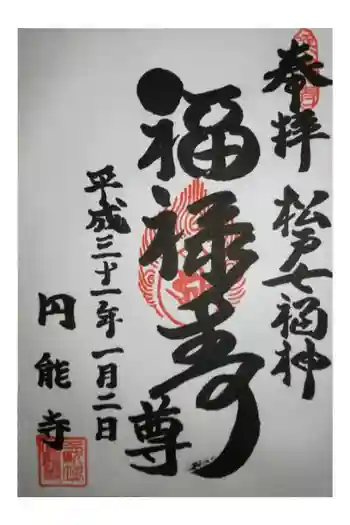 奉拝
松戸七福神
福禄寿尊
平成三十一年一月二日
円能寺